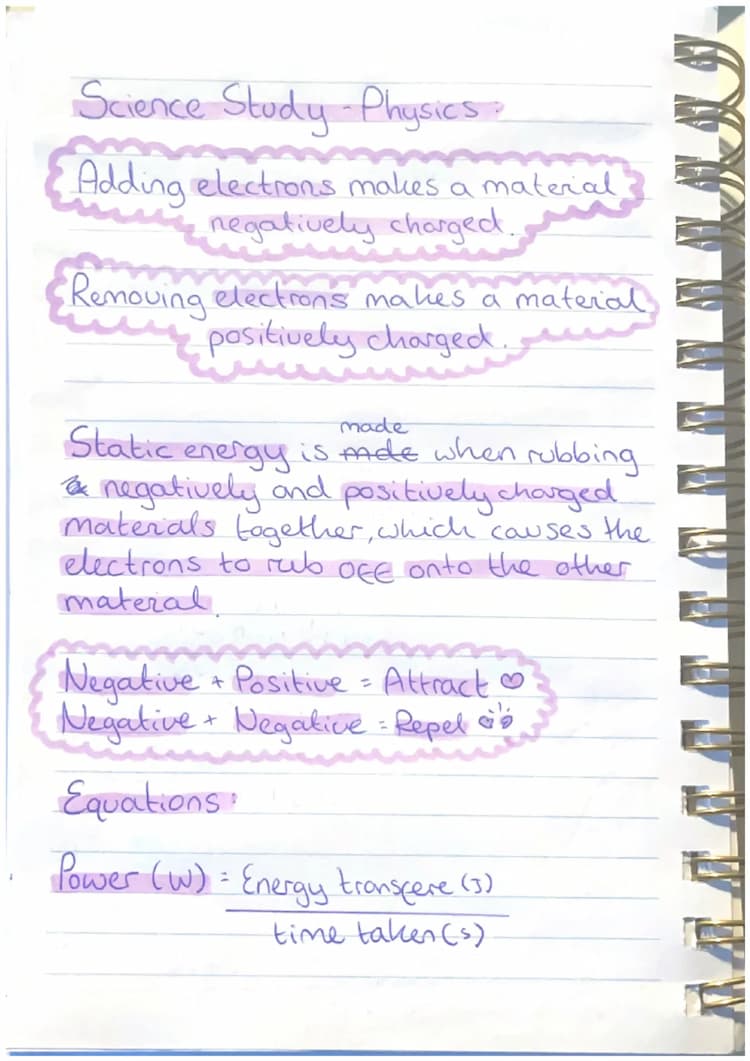 Science Study - Physics:
Adding electrons makes a material
negatively charged.
Removing electrons makes a material
positively charged.
made
Static energy is mde when rubbing
negatively and positively charged
materials together, which causes the
electrons to rub off onto the other
material.
Negative + Positive = Attract ♡
Negative + Negative = Repel
Equations:
Power (W) = Energy transfere (J)
time taken (s)